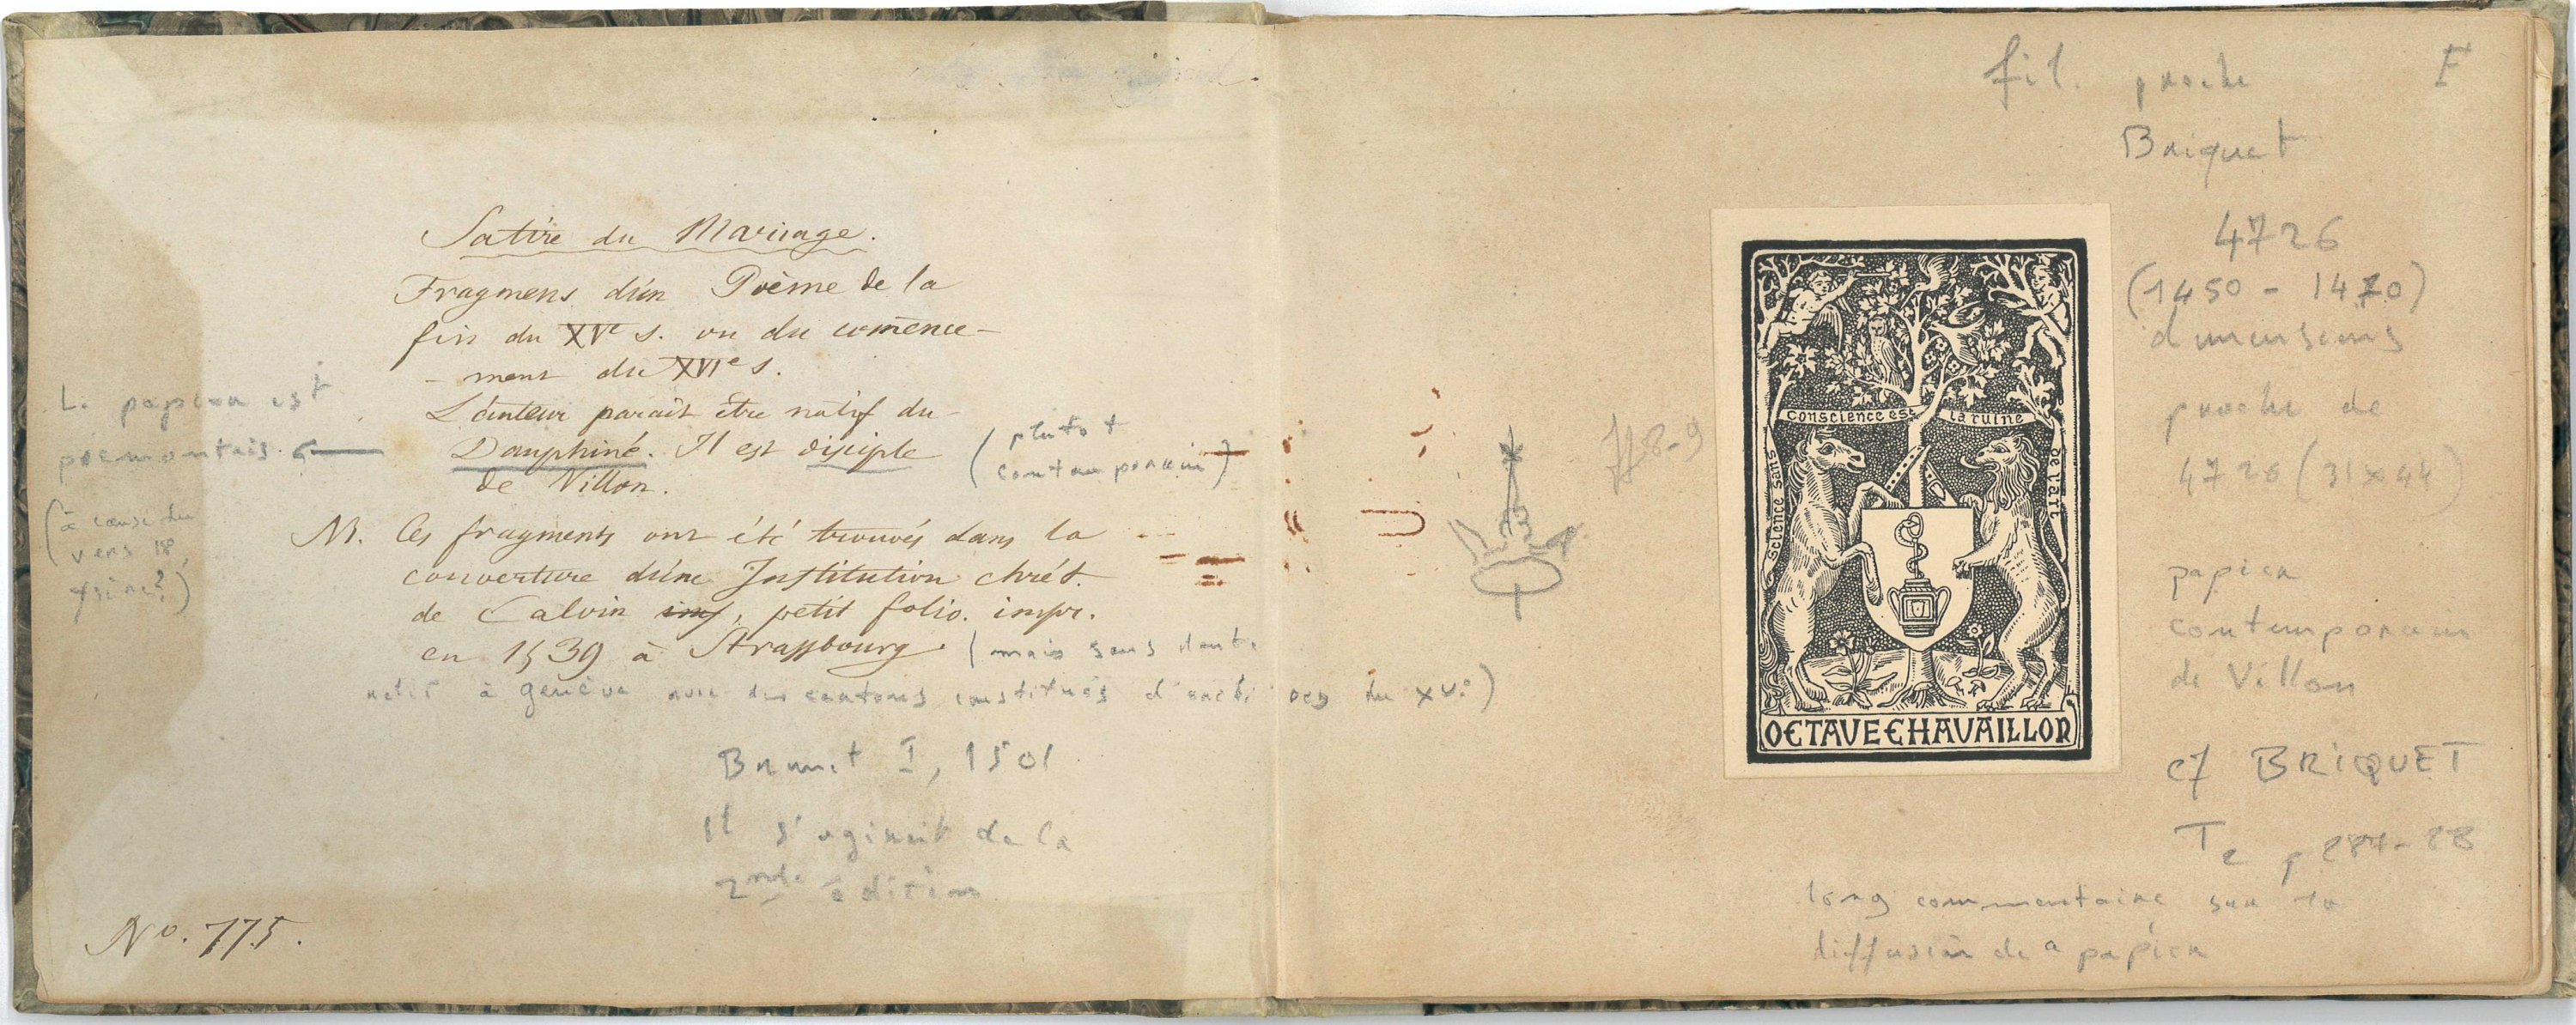 Satire du Mariage.
Fragmens d'un Poème de la
fin du XVe s. ou du comence-
- ment du XVIe s.
L'auteur parait être natif du
Dauphiné. Il est disciple
de Villon.
(plutot
contemporain)
Le papier est
piemontais.
(à cause du
vers 18,
NB. Ces fragments ont été trouvés dans la
couverture d'une Institution chrét.
de Calvin imp, petit folio. impr.
en 1539 à Strassbourg. (mais sans doute
relié à genève avec des cartons constitués d'archives du XVe)
Brunet I, 1501
Il s'agirait de la
2nde édition
No. 775.
F
fil. proche
Briquet
4726
(1450 - 1470)
dimensions
proche de
4726 (31x44)
ff 8-9
papier
contemporain
de Villon
cf BRIQUET
T2 p 287-88
long commentaire sur la
diffusion de ce papier
Science sans conscience est la ruine de l'art
OCTAVE CHAVAILLON